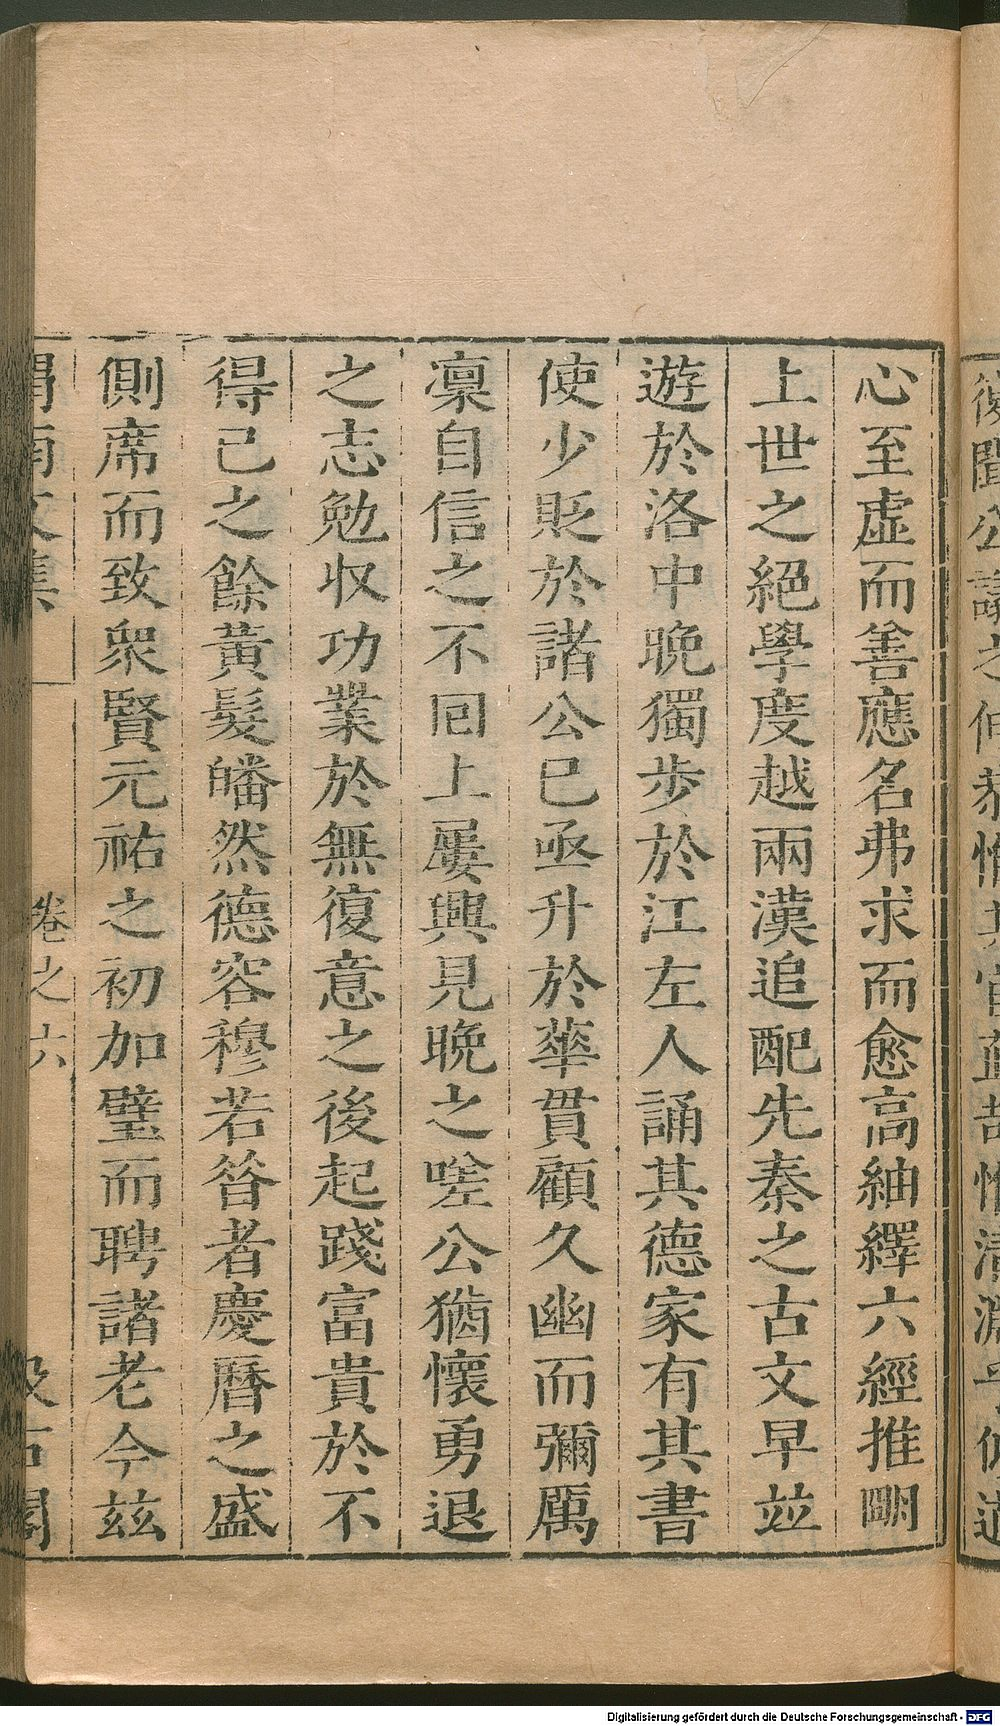 心至虛而善應名弗求而愈高紬繹六經推明
上世之絕學度越兩漢追配先秦之古文早竝
遊於洛中晚獨步於江左人誦其德家有其書
使少貶於諸公已亟升於華貫顧久幽而彌厲
凜自信之不回上屢興見晚之嗟公猶懷勇退
之志勉収功業於無復意之後起踐富貴於不
得已之餘黃髮皤然德容穆若昝者慶曆之盛
側席而致衆賢元祐之初加璧而聘諸老今茲
渭南文集
卷之六
汲古閣
Digitalisierung gefördert durch die Deutsche Forschungsgemeinschaft - DFG